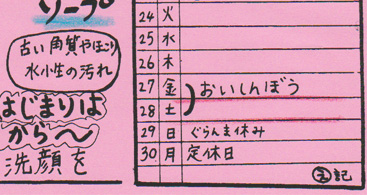 ソープ
古い角質やほこり
水小性の汚れ
はじまりは
がら〜
洗顔を
24 火
25 水
26 木
27 金
28 土
おいしんぼう
29 日 ぐらんま休み
30 月 定休日
記